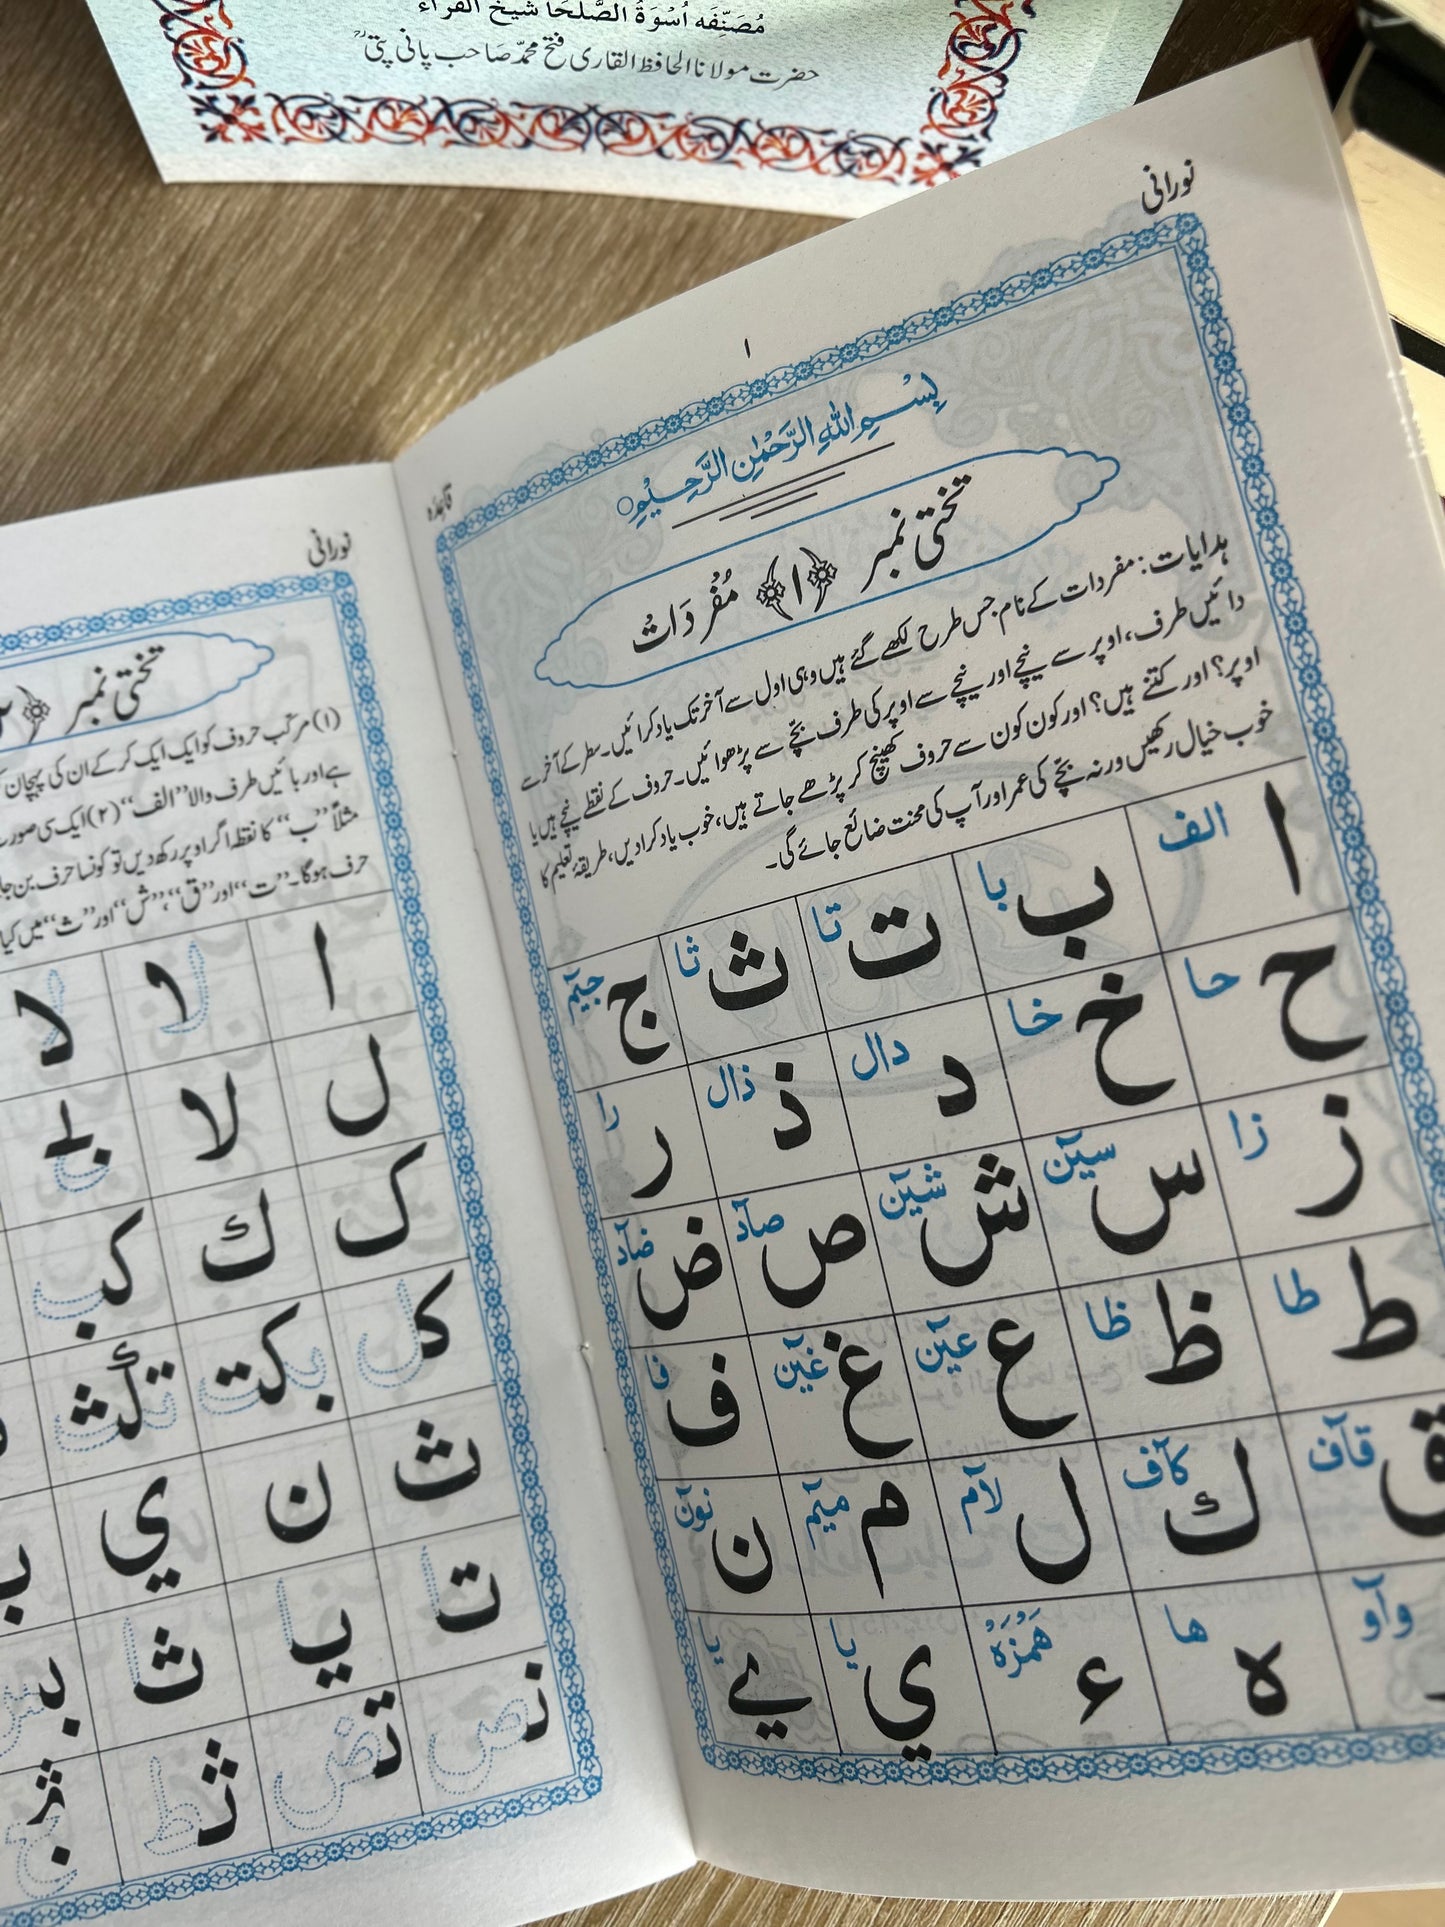 مُصَنِّفَه اُسْوَةُ الصُّلَحَا شیخ القراء
حضرت مولانا الحافظ القاری فتح محمّد صاحب پانی پتی
نورانی
۱
قاعدہ
بِسْمِ اللهِ الرَّحْمٰنِ الرَّحِيْمِ
تختی نمبر ﴿۱﴾ مُفْرَدَاتْ
ہدایات: مفردات کے نام جس طرح لکھے گئے ہیں وہی اول سے آخر تک یاد کرائیں۔ سطر کے آخر سے
دائیں طرف، اوپر سے نیچے اور نیچے سے اوپر کی طرف بچّے سے پڑھوائیں۔ حروف کے نقطے نیچے ہیں یا
اوپر؟ اور کتنے ہیں؟ اور کون کون سے حروف کھینچ کر پڑھے جاتے ہیں، خوب یاد کرا دیں، طریقۂ تعلیم کا
خوب خیال رکھیں ورنہ بچّے کی عمر اور آپ کی محنت ضائع جائے گی۔
ا الف ب با ت تا ث ثا ج جیٓم
ح حا خ خا د دال ذ ذال ر را
ز زا س سیٓن ش شیٓن ص صآد ض ضآد
ط طا ظ ظا ع عیٓن غ غیٓن ف ف
ق قآف ك كآف ل لآم م میٓم ن نوٓن
وآو ه ها ء هَمْزَهْ ي يا ے يا
نورانی
تختی نمبر
(۱) مرکب حروف کو ایک ایک کر کے ان کی پہچان
ہے اور بائیں طرف والا ”الف“ (۲) ایک سی صورت
مثلاً ”ب“ کا نقطہ اگر اوپر رکھ دیں تو کونسا حرف بن
حرف ہوگا۔ ”ت“ اور ”ق“، ”ش“ اور ”ث“ میں کیا
ا لا لا
ل لا بـا
ک ك كب
كل بكت تكث
ث ن ي
ت یا ث